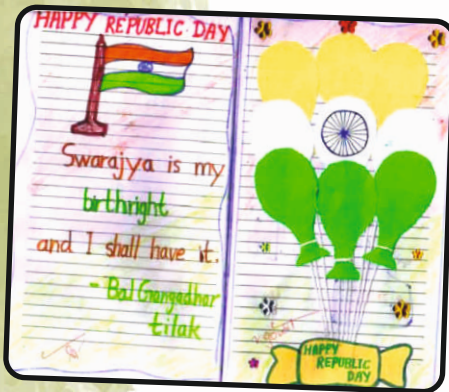 HAPPY REPUBLIC DAY
Swarajya is my
birthright
and I shall have it.
- Bal Gangadhar
tilak
HAPPY
REPUBLIC
DAY